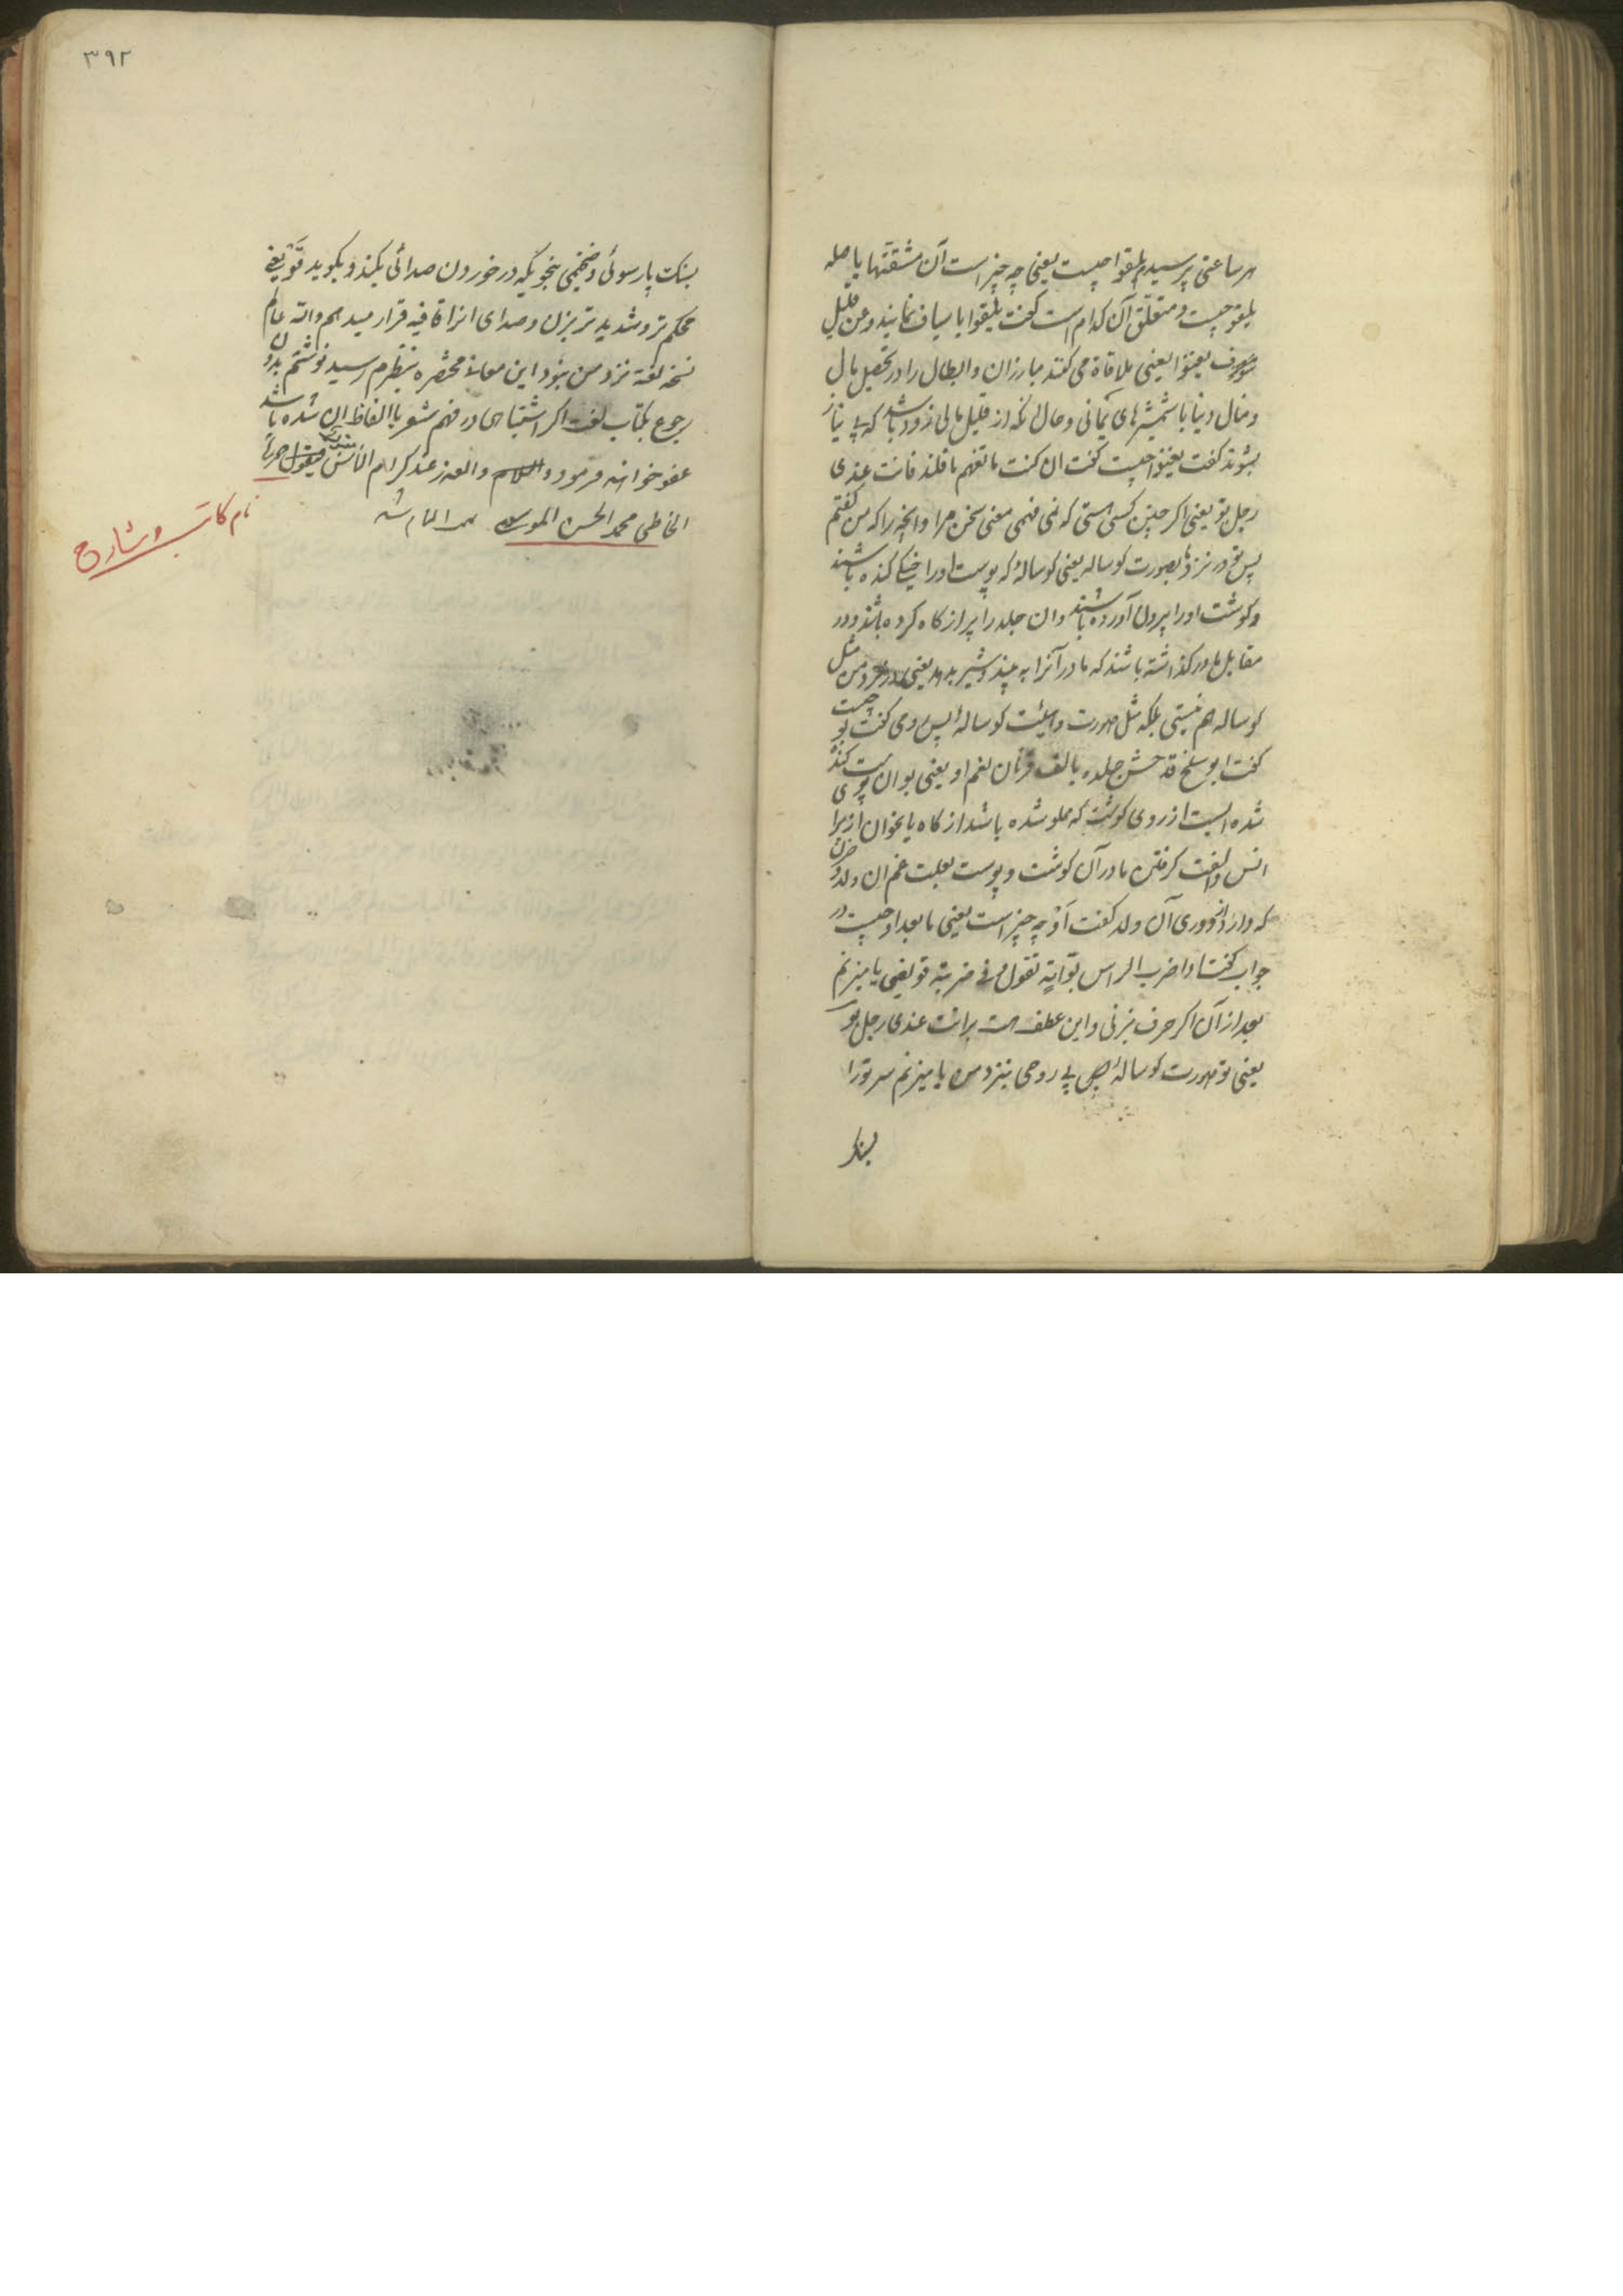 هر ساعتی پرسیدم یلقوا چیست یعنی چه چیز است آن مشقتها یا صله
یلقو چیست و متعلق آن کدام است گفت یلقوا باسیاف نمایند و عن قلیل
سوف یغنوا یعنی ملاقاة می کنند مبارزان و ابطال را در تحصیل مال
و منال دنیا با شمشیرهای یمانی و حال آنکه از قلیل مالی زود باشد که بی نیاز
بشوند گفت یغنوا چیست گفت ان کنت ما تفهم ما قلته فانت عندی
رجل بو یعنی اگر چنین کسی هستی که نمی فهمی معنی سخن مرا و آنچه را که من گفتم
پس تو در نزد ما بصورت گوساله یعنی گوسالهٔ که پوست او را خیکی کنده باشند
و گوشت او را بیرون آورده باشند و ان جلد را پر از کاه کرده باشند و در
مقابل مادر گذاشته باشند که مادر آنرا به بیند و شیر بدهد یعنی در نزد من مثل
گوساله هم نیستی بلکه مثل صورت و هیئت گوسالهٔ پس رومی گفت بو چیست
گفت ابو سلخ قد حشی جلده یعنی بو ان پوست کنده
شده ایست از روی گوشت که مملو شده باشد از کاه یا بخوان از برای
انس و الفت گرفتن مادر آن گوشت و پوست بعلت غم ان ولد و حزن
که دارد از دوری آن ولد گفت أو چه چیز است یعنی ما بعد او چیست در
جواب گفت او اضرب الراس بوّانیّة تقول فی ضربته قو یعنی یا میزنم
بعد از آن اگر حرف بزنی و این عطف است بر انت عندی رجل بو
یعنی تو صورت گوسالهٔ بی روحی بنزد من یا میزنم سر تو را
بسنگ
۳۹۲
بسنگ پارسوئی و ضخیمی بنحویکه در خوردن صدائی بکند و بگوید قو یعنی
محکم تر و شدید تر بزن و صدای انرا قافیه قرار میدهم والله عالم
نسخه لغة نزد من نبود این معانئ مختصره بنظرم رسید نوشتم بدون
رجوع بکتاب لغت اگر اشتباهی در فهم شعر یا الفاظ ان شده باشد
عفو خواهند فرمود و السلام و العذر عند کرام الناس مقبول حرره
الخاطی محمد الحسن الموسوی
نام کاتب و شارح